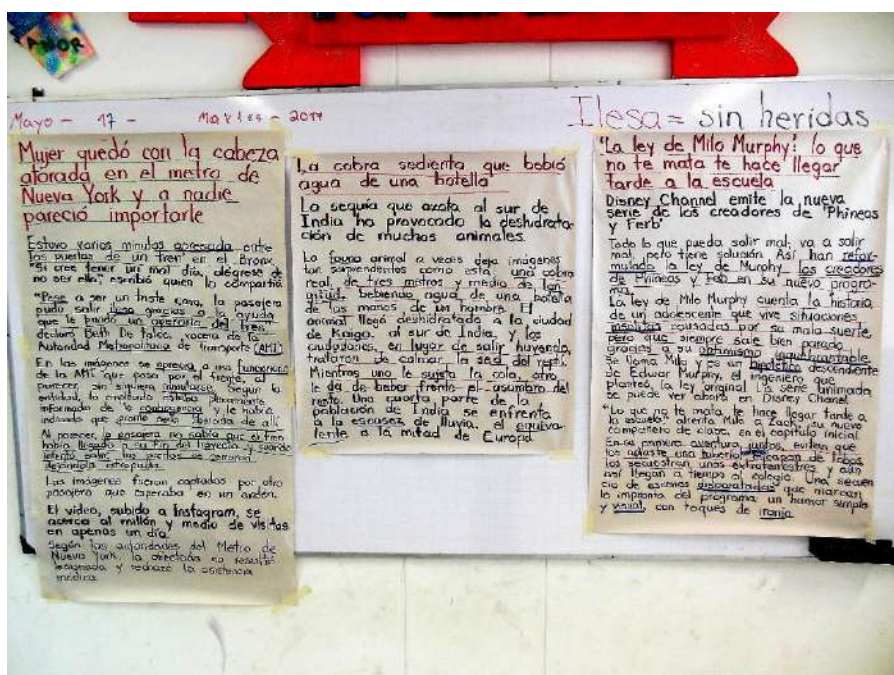 AMOR
Mayo - 17 - Martes - 2017
Ilesa = sin heridas
Mujer quedó con la cabeza
atorada en el metro de
Nueva York y a nadie
pareció importarle
Estuvo varios minutos apresada entre
las puertas de un tren en el Bronx.
"Si cree tener un mal día, alégrese de
no ser ella", escribió quien lo compartió.
"Pese a ser un triste caso, la pasajera
pudo salir ilesa gracias a la ayuda
que le prestó un operario del tren",
declaró Beth De Falco, vocera de la
Autoridad Metropolitana de Transporte (AMT)
En las imágenes se aprecia a una funcionaria
de la AMT que pasa por el frente, al
parecer, sin siquiera inmutarse. Según la
entidad, la empleada estaba plenamente
informada de lo y le había
indicado que pronto sería liberada de allí.
Al parecer, la pasajera no sabía que el tren
había llegado a su fin del trayecto y cuando
intentó salir, las puertas se cerraron
dejándola atrapada.
Las imágenes fueron captadas por otro
pasajero que esperaba en un andén.
El video, subido a Instagram, se
acerca al millón y medio de visitas
en apenas un día.
Según las autoridades del Metro de
Nueva York, la afectada no resultó
lesionada y rechazó la asistencia
médica.
La cobra sedienta que bebió
agua de una botella
La sequía que azota al sur de
India ha provocado la deshidrata-
ción de muchos animales.
La fauna animal a veces deja imágenes
tan sorprendentes como esta: una cobra
real, de tres metros y medio de lon
gitud, bebiendo agua de una botella
de las manos de un hombre. El
animal llegó deshidratado a la ciudad
de Kaiga, al sur de India, y los
ciudadanos, en lugar de salir huyendo,
trataron de calmar la sed del reptil.
Mientras uno le sujeta la cola, otro
le da de beber frente el asombro del
resto. Una cuarta parte de la
población de India se enfrenta
a la escasez de lluvia, el equiva
lente a la mitad de Europa
'La ley de Milo Murphy': lo que
no te mata te hace llegar
tarde a la escuela
Disney Channel emite la nueva
serie de los creadores de 'Phineas
y Ferb'
Todo lo que pueda salir mal, va a salir
mal, pero tiene solución. Así han refor-
mulado la ley de Murphy los creadores
de Phineas y Feb en su nuevo progra-
ma.
La ley de Milo Murphy cuenta la historia
de un adolescente que vive situaciones
insólitas causadas por su mala suerte,
pero que siempre sale bien parado
gracias a su optimismo inquebrantable.
Se llama Milo y es un hipotético descendiente
de Edwar Murphy, el ingeniero que
planteó la ley original. La serie animada
se puede ver ahora en Disney Channel.
"Lo que no te mata, te hace llegar tarde a
la escuela", alerita Milo a Zack, su nuevo
compañero de clase, en el capítulo inicial.
En su primera aventura juntos, evitan que
los aplaste una tubería, escapan de lobos,
los secuestran unos extraterrestres y aún
así llegan a tiempo al colegio. Una secuen
cia de escenas disparatadas que marcan
la impronta del programa: un humor simple
y visual, con toques de ironía.